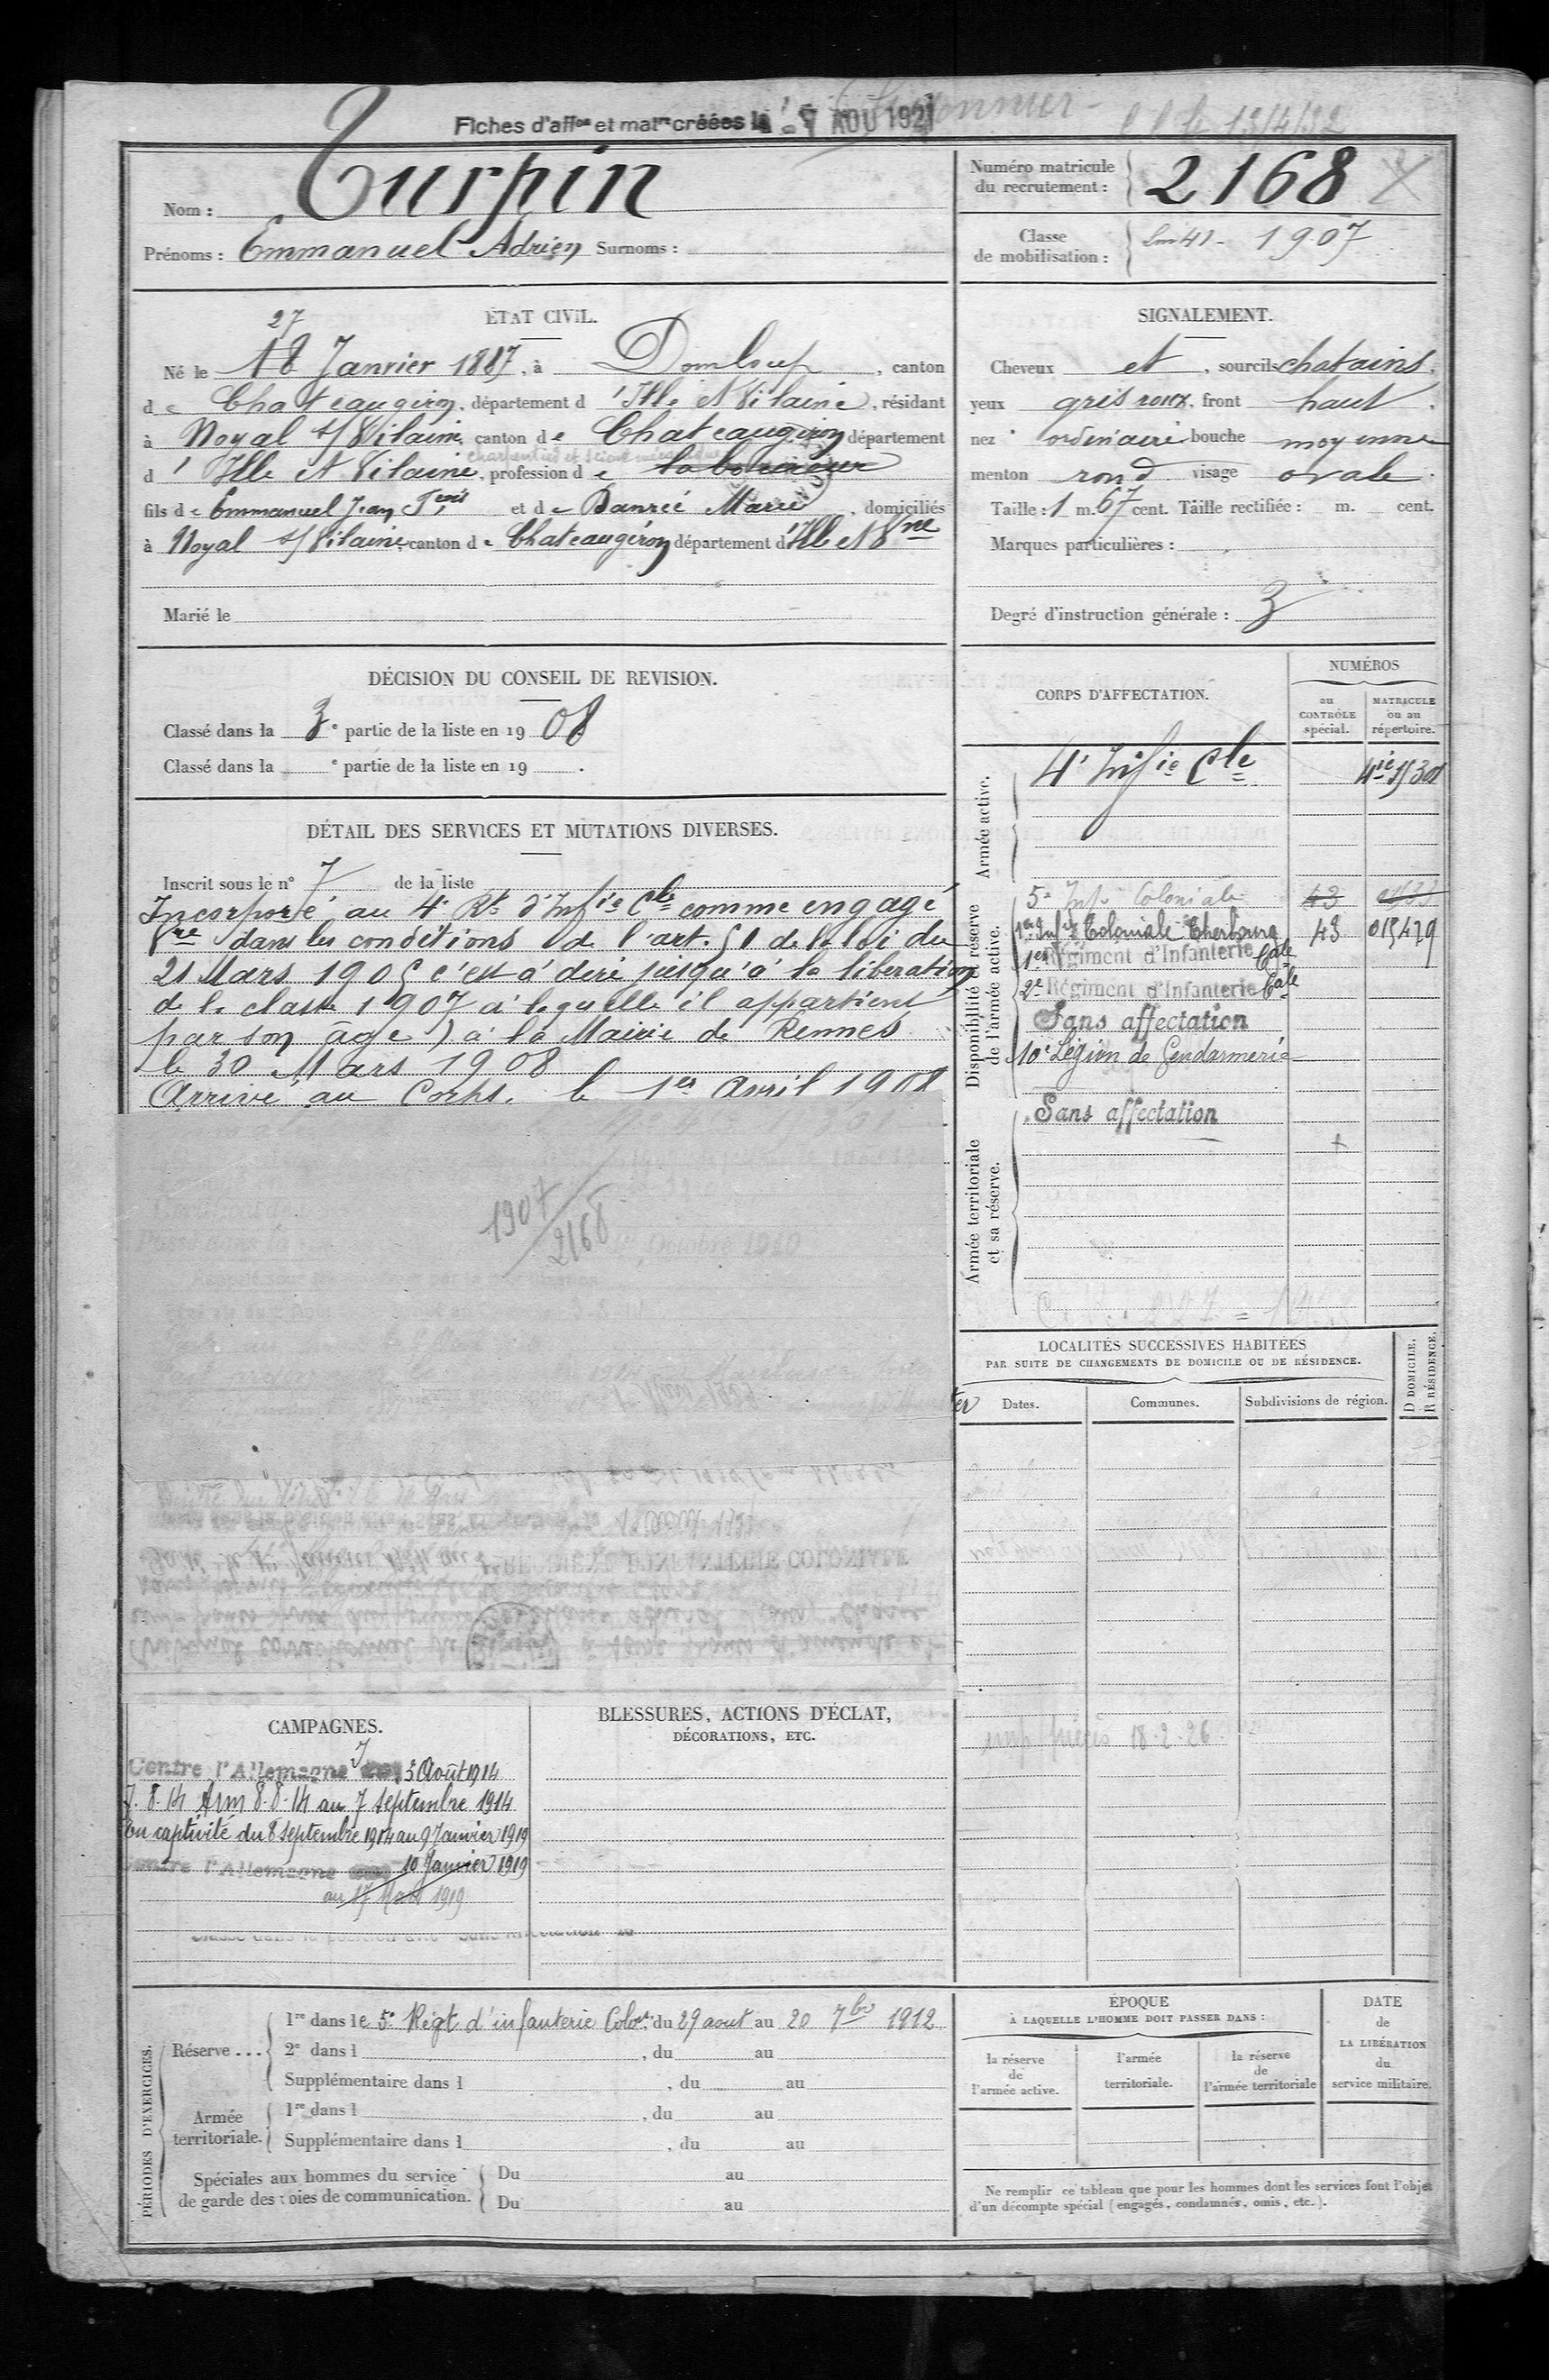 Fiches d'aff^on et mat^re créées le - 7 AOU 1921
Prisonnier
13/4/32
Nom : Turpin
Prénoms : Emmanuel Adrien Surnoms :
Numéro matricule du recrutement : 2168
Classe de mobilisation : 1907
ÉTAT CIVIL.
27
Né le 18 Janvier 1887, à Domloup, canton
de Chateaugiron, département d'Ille et Vilaine, résidant
à Noyal s/Vilaine, canton de Chateaugiron département
d'Ille et Vilaine, profession de laboureur
charpentier et scieur mécanique
fils de Emmanuel Jean Fçois et de Danrée Marie, domiciliés
à Noyal s/Vilaine canton de Chateaugiron département d'Ille et Vne
Marié le
SIGNALEMENT.
Cheveux et, sourcils chatains.
yeux gris roux, front haut.
nez ordinaire bouche moyenne
menton rond visage ovale.
Taille : 1 m. 67 cent. Taille rectifiée : m. cent.
Marques particulières :
Degré d'instruction générale : 3
DÉCISION DU CONSEIL DE REVISION.
Classé dans la 3e partie de la liste en 1908
Classé dans la e partie de la liste en 19 .
DÉTAIL DES SERVICES ET MUTATIONS DIVERSES.
Inscrit sous le n° 7 de la liste
Incorporé au 4e Rt d'Infie Cle comme engagé
Vre dans les conditions de l'art. 51 de la loi du
21 Mars 1905 c'est à dire jusqu'à la libération
de la classe 1907 à laquelle il appartient
par son âge) à la Mairie de Rennes
le 30 Mars 1908
Arrivé au Corps, le 1er Avril 1908
1907
2168
Octobre 1910
CORPS D'AFFECTATION.
NUMÉROS
au CONTRÔLE spécial.
MATRICULE ou au répertoire.
Armée active.
4e Infie Cle
Disponibilité et réserve de l'armée active.
5e Infie Coloniale 43
1er Infie Coloniale Cherbourg 43 015479
1er Régiment d'Infanterie Cale
2e Régiment d'Infanterie Cale
Sans affectation
10e Légion de Gendarmerie
Armée territoriale et sa réserve.
Sans affectation
LOCALITÉS SUCCESSIVES HABITÉES
PAR SUITE DE CHANGEMENTS DE DOMICILE OU DE RÉSIDENCE.
Dates.
Communes.
Subdivisions de région.
D DOMICILE.
R RÉSIDENCE.
18.2.26
1er RÉGIMENT D'INFANTERIE COLONIALE
CAMPAGNES.
Contre l'Allemagne 3 Août 1914
7.8.14 Arm 8.8.14 au 7 septembre 1914
En captivité du 8 septembre 1914 au 9 Janvier 1919
Contre l'Allemagne 10 Janvier 1919
au 17 Mars 1919
BLESSURES, ACTIONS D'ÉCLAT,
DÉCORATIONS, ETC.
PÉRIODES D'EXERCICES.
Réserve ...
1re dans le 5e Régt d'infanterie Colole, du 29 aout au 20 7bre 1912
2e dans l , du au
Supplémentaire dans l , du au
Armée territoriale.
1re dans l , du au
Supplémentaire dans l , du au
Spéciales aux hommes du service de garde des voies de communication.
Du au
Du au
ÉPOQUE
À LAQUELLE L'HOMME DOIT PASSER DANS :
la réserve de l'armée active.
l'armée territoriale.
la réserve de l'armée territoriale
DATE de LA LIBÉRATION du service militaire.
Ne remplir ce tableau que pour les hommes dont les services font l'objet
d'un décompte spécial (engagés, condamnés, omis, etc.).